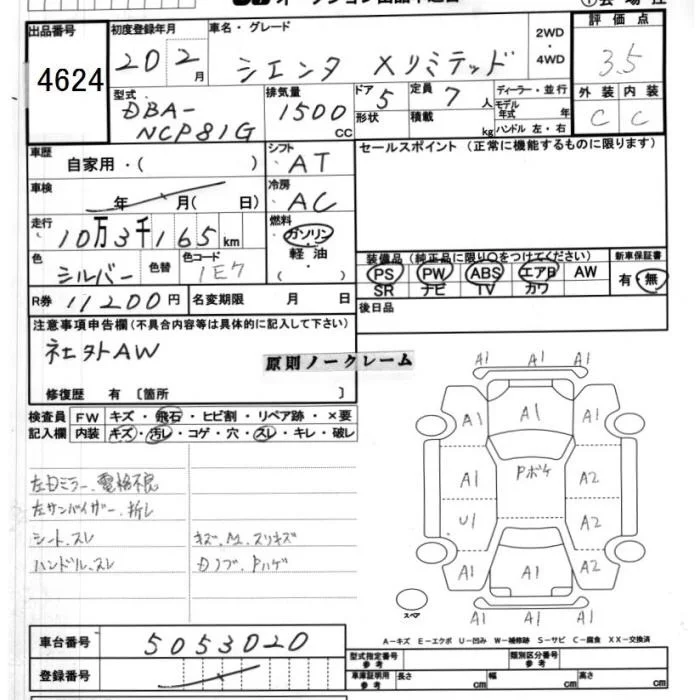 出品番号
4624
初度登録年月
20 2月
車名・グレード
シエンタ Xリミテッド
2WD
・
4WD
評価点
3.5
外装 内装
C C
型式
DBA-
NCP81G
排気量
1500
CC
ドア
5
形状
定員
7人
積載
kg
ディーラー・並行
モデル
年式 年
ハンドル 左・右
車歴
自家用・( )
シフト
AT
セールスポイント(正常に機能するものに限ります)
車検
年 月( 日)
冷房
AC
走行
10万3千165km
燃料
ガソリン
軽油
・( )
色
シルバー
色替
色コード
1E7
装備品(純正品に限り○をつけてください)
PS PW ABS エアB AW
SR ナビ TV カワ
新車保証書
有・無
R券 11200円
名変期限 月 日
後日品
注意事項申告欄(不具合内容等は具体的に記入して下さい)
社外AW
原則ノークレーム
修復歴 有〔箇所 〕
検査員
記入欄
FW キズ・飛石・ヒビ割・リペア跡・×要
内装 キズ・汚レ・コゲ・穴・スレ・キレ・破レ
左ドミラー、電格不良
左サンバイザー、折レ
シート、スレ
ハンドル、スレ
キズ、A1、スリキズ
Dノブ、Pハゲ
A1 A1 A1
A1 A1 A1
A1 Pボケ A2
U1 A2
A1 A1 A1
A1 A1 A1
スペア
A-キズ E-エクボ U-凹み W-補修跡 S-サビ C-腐食 XX-交換済
車台番号
5053020
登録番号
型式指定番号
参考
類別区分番号
参考
車庫証明用
参考
長さ cm
幅 cm
高さ cm